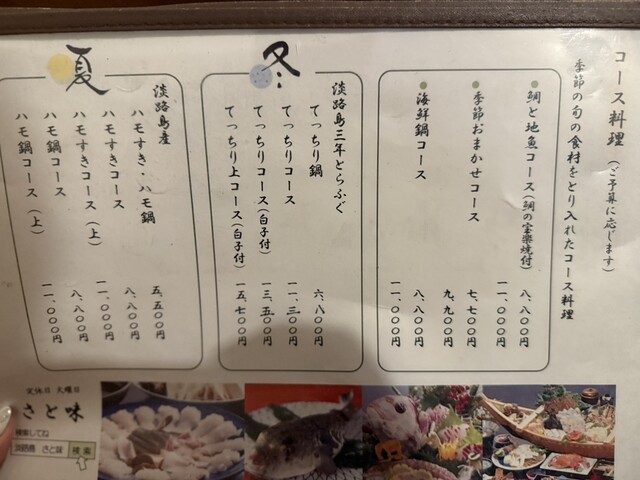 コース料理（ご予算に応じます）
季節の旬の食材をとり入れたコース料理
鯛と地魚コース（鯛の宝楽焼付）
八、八〇〇円
一一、〇〇〇円
季節おまかせコース
七、七〇〇円
九、九〇〇円
海鮮鍋コース
八、八〇〇円
一一、〇〇〇円
冬
淡路島三年とらふぐ
てっちり鍋
六、八〇〇円
てっちりコース
一一、三〇〇円
てっちりコース（白子付）
一三、五〇〇円
てっちり上コース（白子付）
一五、七〇〇円
夏
淡路島産
ハモすき・ハモ鍋
五、五〇〇円
ハモすきコース
八、八〇〇円
ハモすきコース（上）
一一、〇〇〇円
ハモ鍋コース
八、八〇〇円
ハモ鍋コース（上）
一一、〇〇〇円
定休日 火曜日
さと味
検索してね
淡路島 さと味
検索